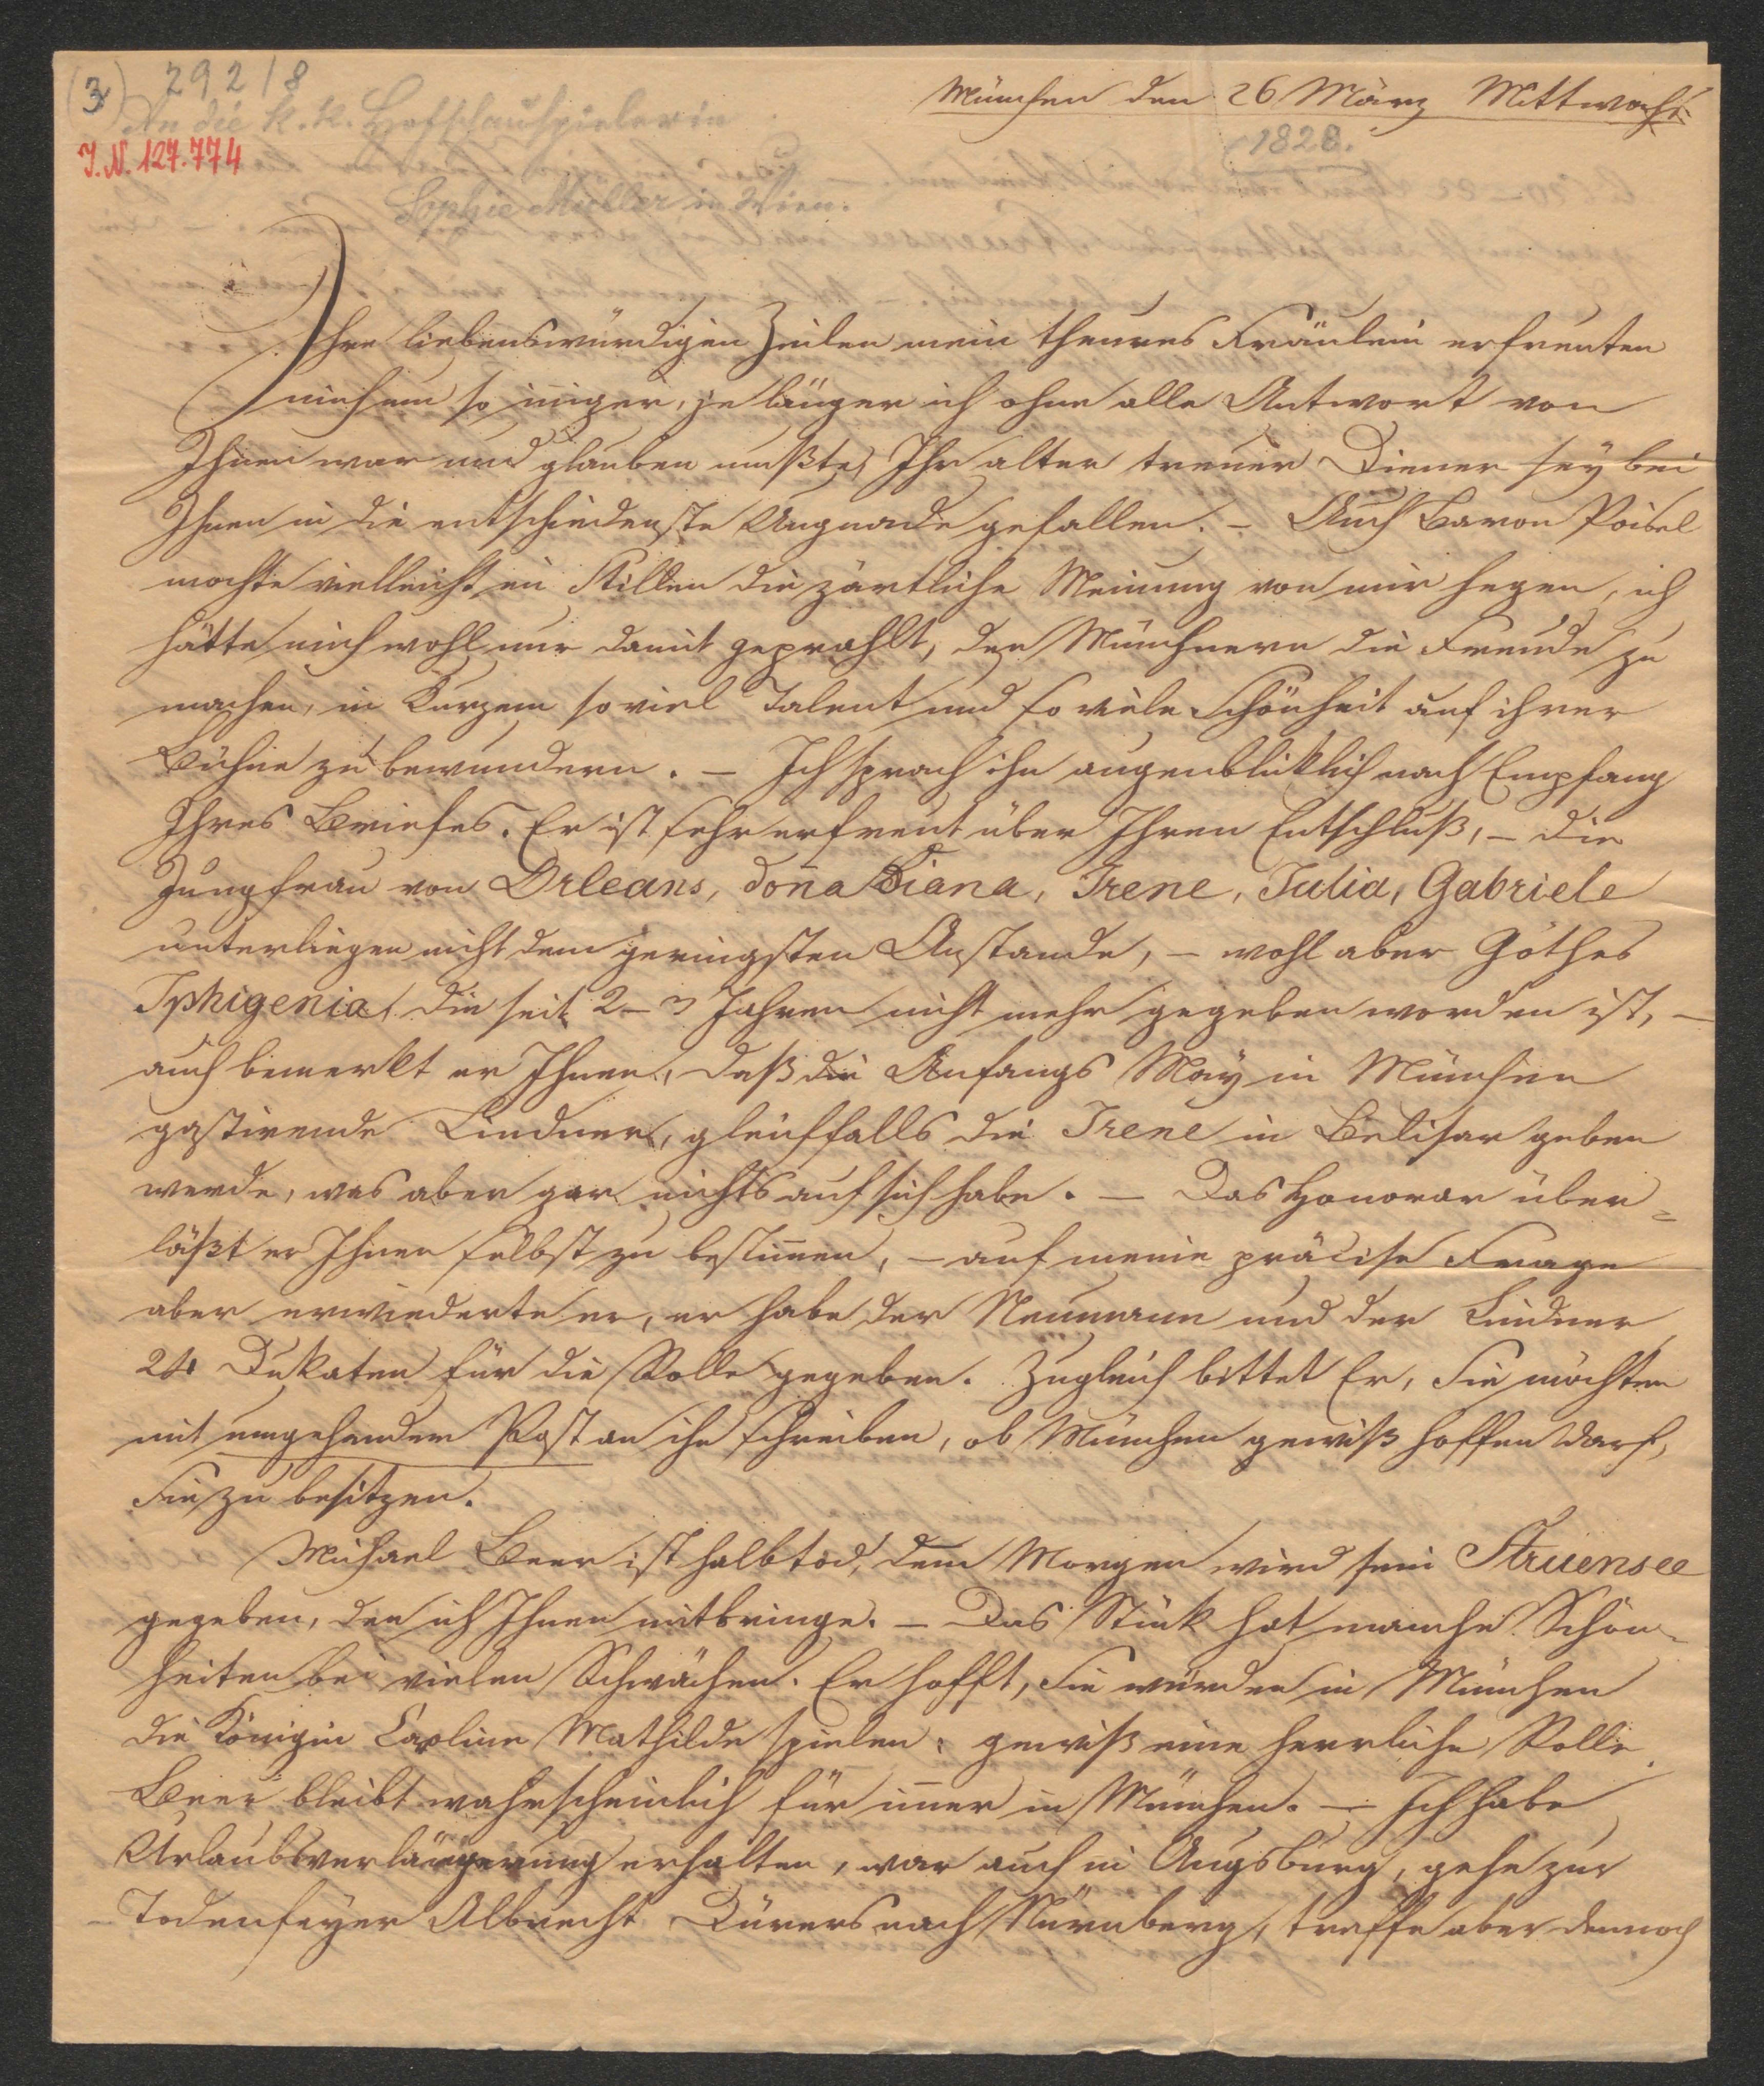 (3) 292/8
An die k. k. Hofschauspielerin
I. N. 127.774
Sophie Müller in Wien.
München den 26 März Mittwochs
(1828.)
Ihre liebenswürdigen Zeilen mein theures Fräulein erfreuten
mich um so inniger, je länger ich ohne alle Antwort von
Ihnen war und glauben mußte, Ihr alter treuer Diener sey bei
Ihnen in die entschiedenste Ungnade gefallen. – Auch Baron Poißl
mochte vielleicht im Stillen die zärtliche Meinung von mir hegen, ich
hätte mich wohl nur damit geprahlt, den Münchnern die Freude zu
machen, in Kurzem soviel Talent und so viele Schönheit auf ihrer
Bühne zu bewundern. – Ich sprach ihn augenbliklich nach Empfang
Ihres Briefes. Er ist sehr erfreut über Ihren Entschluß, – die
Jungfrau von Orleans, Doña Diana, Irene, Julia, Gabriele
unterliegen nicht dem geringsten Anstande, – wohl aber Göthes
Iphigenia, die seit 2–3 Jahren nicht mehr gegeben worden ist, –
auch bemerkt er Ihnen, daß die Anfangs May in München
gastirende Lindner, gleichfalls die Irene in Belisar geben
werde, was aber gar nichts auf sich habe. – Das Honorar über=
läßt er Ihnen selbst zu bestim̄en, – auf meine präcise Frage
aber erwiederte er, er habe der Neumann und der Lindner
24 Dukaten für die Rolle gegeben. Zugleich bittet Er, Sie möchten
mit umgehender Post an ihn schreiben, ob München gewiß hoffen darf,
Sie zu besitzen.
Michael Beer ist halbtod, denn Morgen wird sein Struensee
gegeben, den ich Ihnen mitbringe. – Das Stük hat manche Schön=
heiten bei vielen Schwächen. Er hofft, Sie würden in München
die Königin Caroline Mathilde spielen: gewiß eine herrliche Rolle.
Beer bleibt wahrscheinlich für im̄er in München. – Ich habe
Urlaubsverlängerung erhalten, war auch in Augsburg, gehe zur
Todenfeyer Albrecht Dürers nach Nürnberg, treffe aber dennoch